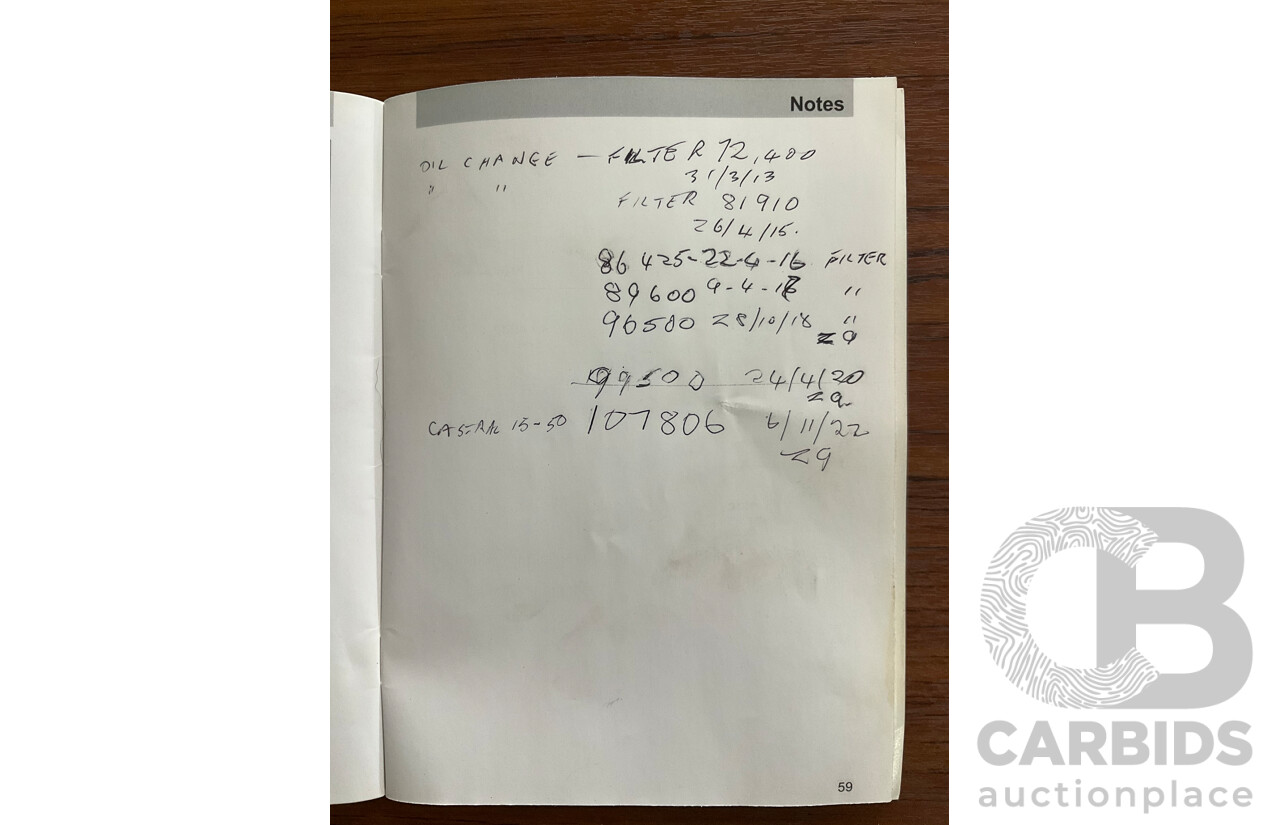 Notes
OIL CHANGE — FILTER 72,400
31/3/13
" " FILTER 81910
26/4/15.
86425-22-4-16 FILTER
89600 9-4-17 "
96580 28/10/18 "
Z9
99500 24/4/20
Z9
15-50 107806 6/11/22
Z9
59
CB
CARBIDS
auctionplace